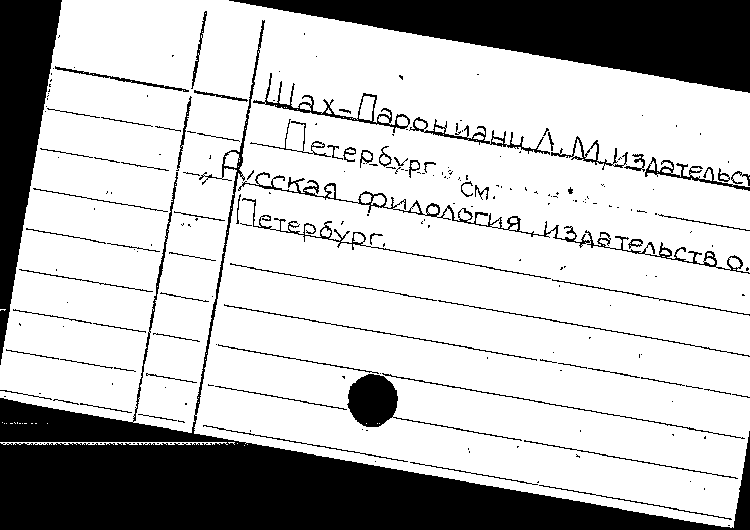 Шах-Паронианц, Л. М, издательст
Петербург
см.
„Русская филология, издательство.
Петербург.